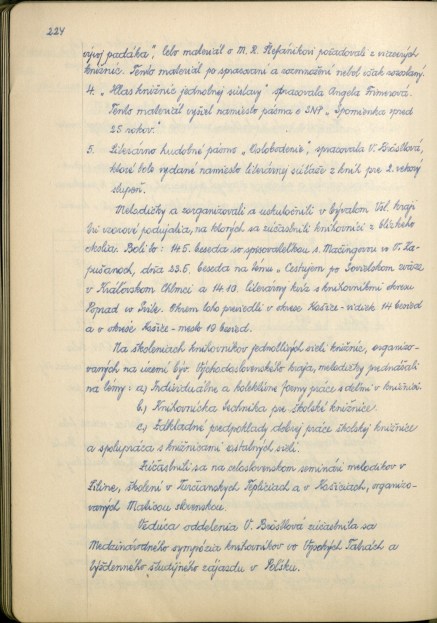 224
vývoj padáka", lebo materiál o M. R. Štefánikovi požadovali z viacerých
knižníc. Tento materiál po spracovaní a rozmnožení nebol však rozoslaný.
4. „Hlas knižníc jednotnej sústavy" spracovala Angela
Tento materiál vyšiel namiesto pásma o SNP „Spomienka spred
25 rokov."
5. Literárno hudobné pásmo „Oslobodenie", spracovala V. Bröstlová,
ktoré bolo vydané namiesto literárnej súťaže z kníh pre 2. vekový
stupeň.
Metodičky a zorganizovali a uskutočnili v bývalom Vsl. kraji
tri vzorové podujatia, na ktorých sa zúčastnili knihovníci z blízkeho
okolia. Boli to: 14.5. beseda so spisovateľkou s. Mačingovou vo V. Ka-
pušanoch, dňa 23.5. beseda na tému „Cestujem po Sovietskom zväze
v Kráľovskom Chlmci a 14.10. literárny kvíz s knihovníkmi okresu
Poprad vo Svite. Okrem toho previedli v okrese Košice-vidiek 14 besied
a v okrese Košice-mesto 19 besied.
Na školeniach knihovníkov jednotlivých sietí knižníc, organizo-
vaných na území býv. Východoslovenského kraja, metodičky prednášali
na témy: a) Individuálne a kolektívne formy práce s deťmi v knižnici.
b) Knihovnícka technika pre školské knižnice.
c) Základné predpoklady dobrej práce školskej knižnice
a spolupráca s knižnicami ostatných sietí.
Zúčastnili sa na celoslovenskom seminári metodikov v
Žiline, školení v Turčianskych Tepliciach a v Košiciach, organizo-
vaných Maticou slovenskou.
Vedúca oddelenia V. Bröstlová zúčastnila sa
Medzinárodného sympózia knihovníkov vo Vysokých Tatrách a
týždenného študijného zájazdu v Poľsku.